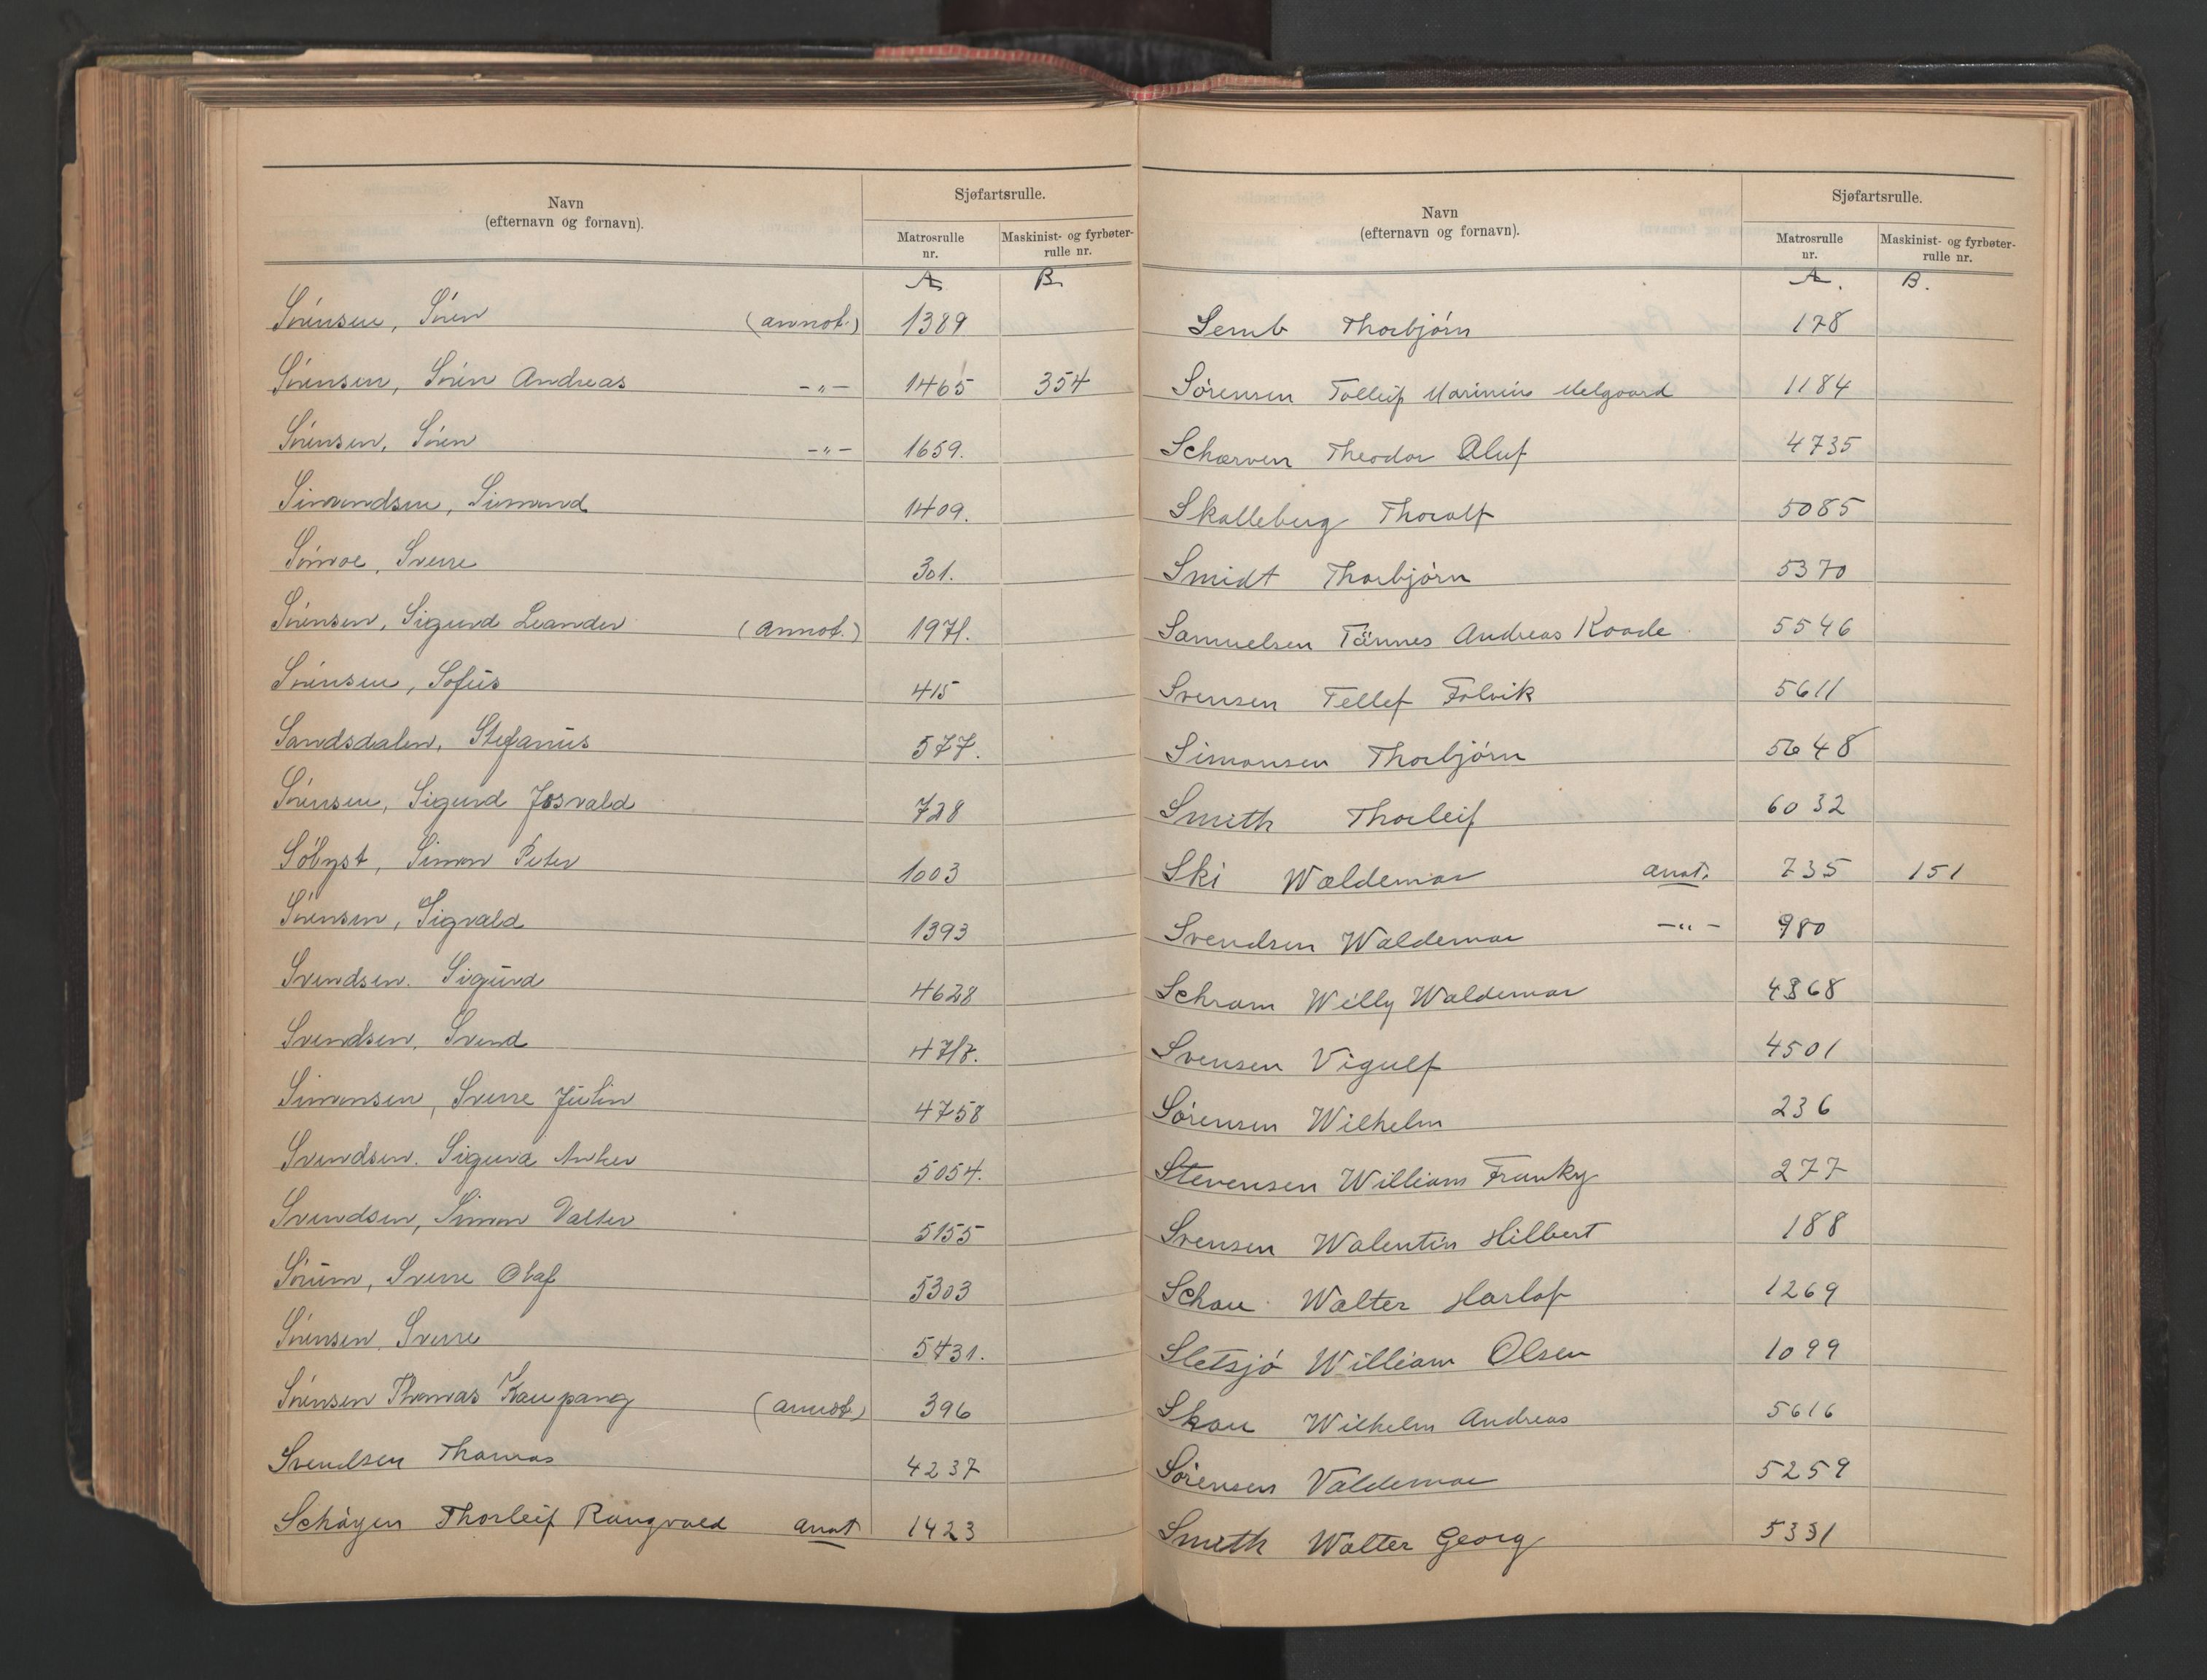 Navn
(efternavn og fornavn).
Sjøfartsrulle.
Matrosrulle nr.
Maskinist- og fyrbøter-rulle nr.
A B.
Sörensen, Sören (annot.) 1389
Sörensen, Sören Andreas -"- 1465 354
Sörensen, Sören -"- 1659.
Simondsen, Simond 1409.
Sverre 301.
Sörensen, Sigurd Leander (annot.) 1971.
Sörensen, Sofus 415
Sandsdalen, Stefanus 577.
Sörensen, Sigurd Josvald 728
Simon Peter 1003
Sörensen, Sigvald 1393
Svendsen. Sigurd 4628
Svendsen, Svend 4717.
Simonsen, Sverre Julin 4758
Svendsen. Sigurd Anker 5054.
Svendsen, Simon Valter 5155
Sörum, Sverre Olaf 5303
Sörensen, Sverre 5431.
Sörensen Thomas Kaupang (annot.) 396
Svendsen Thomas 4237
Schøyen Thorleif Rangvald anot 1423
Navn
(efternavn og fornavn).
Sjøfartsrulle.
Matrosrulle nr.
Maskinist- og fyrbøter-rulle nr.
A. B.
Semb Thorbjörn 178
Sörensen Tolleif Marinius Melgaard 1184
Scharven Theodor Oluf 4735
Skalleberg Thoralf 5085
Smidt Thorbjörn 5370
Samuelsen Tönnes Andreas Koade 5546
Svensen Tellef Folvik 5611
Simonsen Thorbjörn 5648
Smith Thorleif 6032
Ski Waldemar anot. 735 151
Svendsen Waldemar -"- 980
Schram Willy Waldemar 4368
Svensen Vigulf 4501
Sörensen Wilhelm 236
Stevensen William Franky 277
Svensen Walentin Hilbert 188
Schau Walter Harlof 1269
Sletsjö William Olsen 1099
Skau Wilhelm Andreas 5616
Sörensen Valdemar 5259
Smith Walter Georg 5331